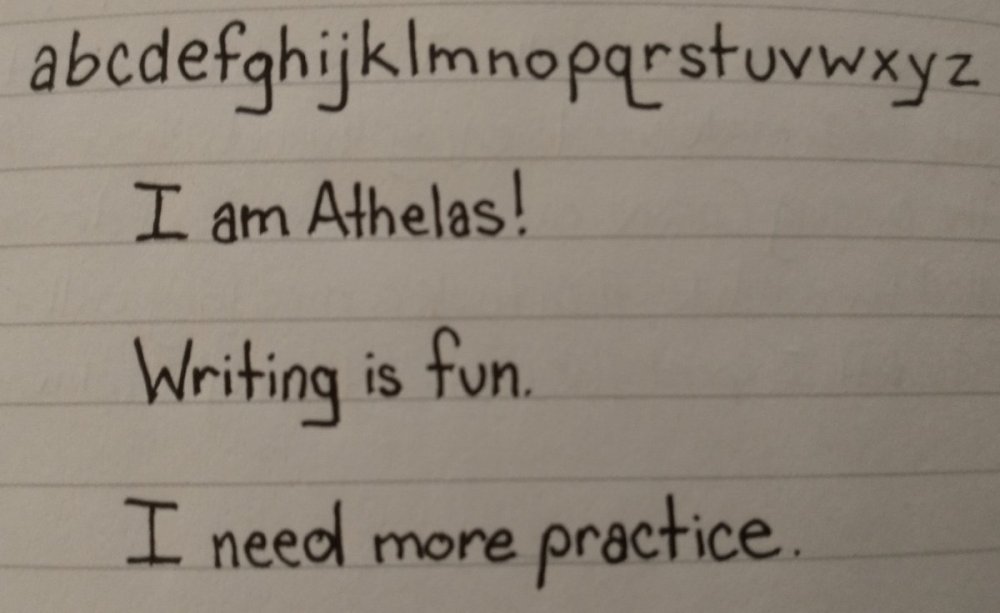 abcdefghijklmnopqrstuvwxyz
I am Athelas!
Writing is fun.
I need more practice.